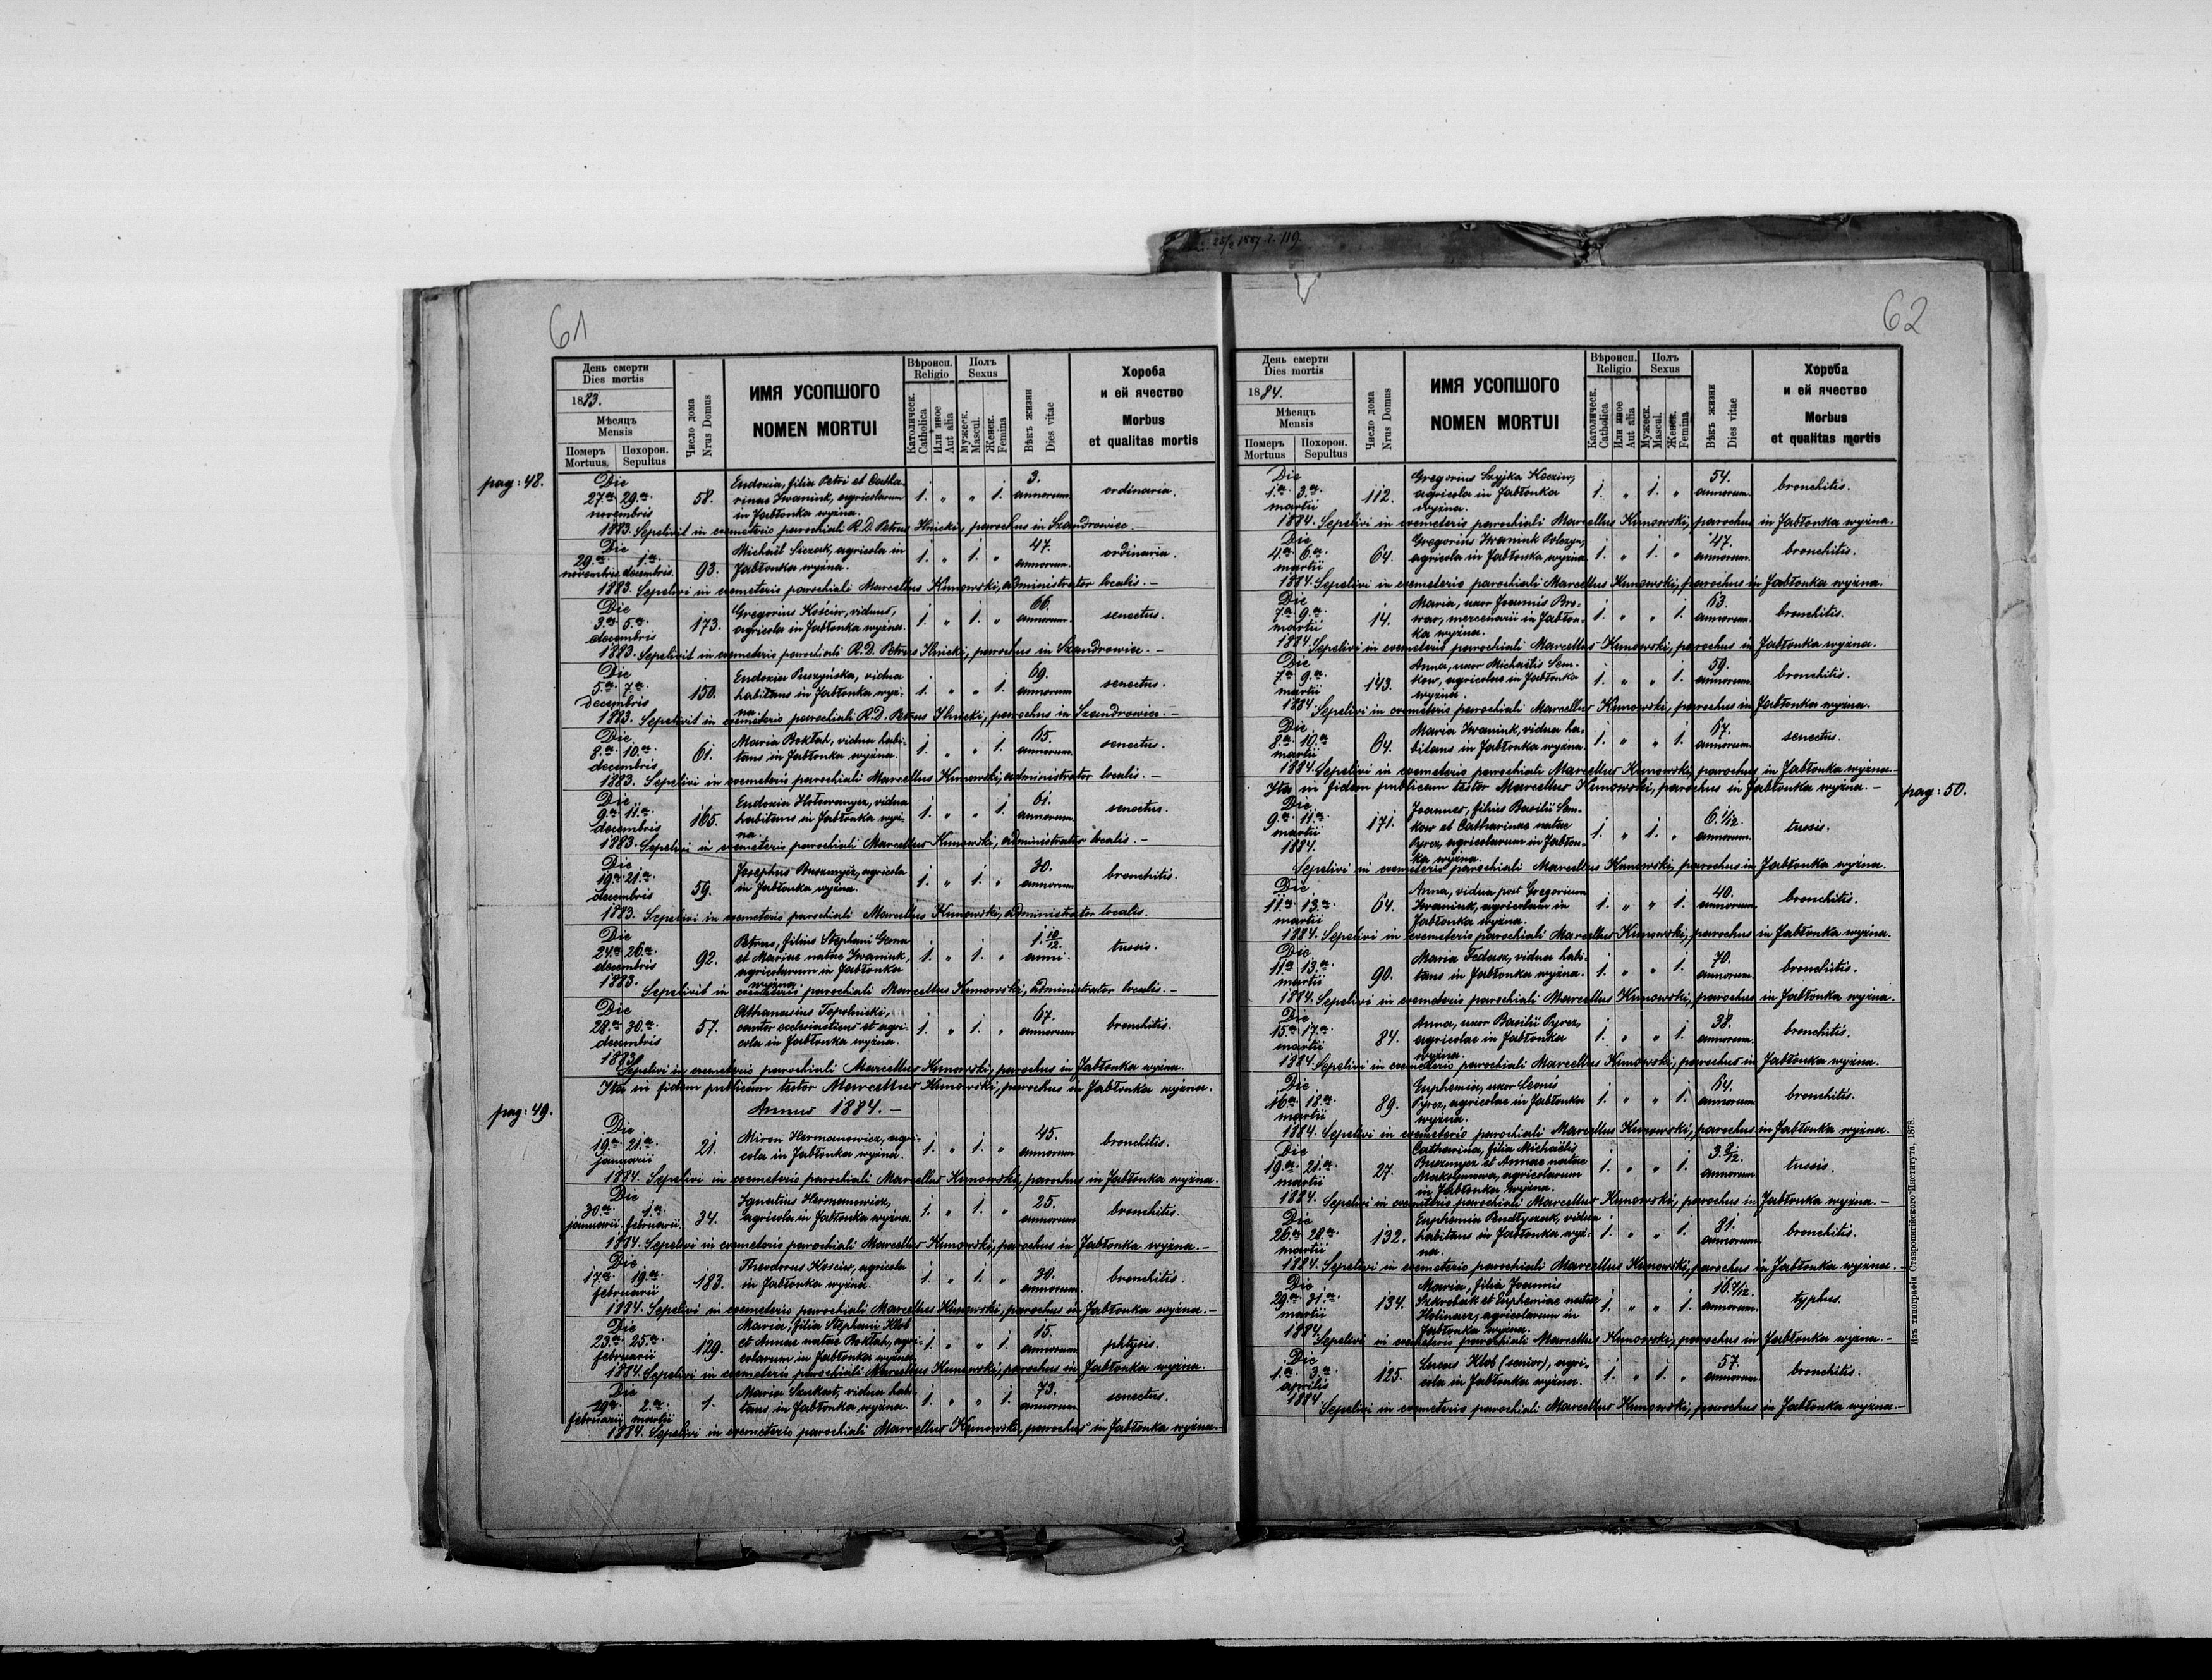 25/2 1887 г. 119.
61
День смерти
Dies mortis
1883.
Мѣсяцъ
Mensis
Померъ Mortuus
Похорон. Sepultus
Число дома
Nrus Domus
ИМЯ УСОПШОГО
NOMEN MORTUI
Вѣроисп.
Religio
Католическ.
Catholica
Или иное
Aut alia
Полъ
Sexus
Мужеск.
Mascul.
Женск.
Femina
Вѣкъ жизни
Dies vitae
Хороба
и ей ячество
Morbus
et qualitas mortis
pag: 48.
Die 27.a 29.a novembris 58. Eudoxia, filia Petri et Catha-
rinae Iwaniuk, agricolarum
in Jabłonka wyżna. 1. „ „ 1. 3. annorum ordinaria.
1883. Sepelivit in coemeterio parochiali R.D. Petrus Ilnicki, parochus in Szandrowiec.
Die 29.a novembris 1.a decembris 93. Michaël Siczak, agricola in
Jabłonka wyżna. 1. „ 1. „ 47. annorum. ordinaria.
1883. Sepelivi in coemeterio parochiali Marcellus Kunowski, administrator localis. –
Die 3.a 5.a decembris 173. Gregorius Kościw, viduus,
agricola in Jabłonka wyżna. 1. „ 1. „ 66. annorum. senectus.
1883. Sepelivit in coemeterio parochiali R.D. Petrus Ilnicki, parochus in Szandrowiec. –
Die 5.a 7.a decembris 150. Eudoxia Puszyńska, vidua
habitans in Jabłonka wyż-
na. 1. „ „ 1. 69. annorum senectus.
1883. Sepelivit in coemeterio parochiali R.D. Petrus Ilnicki, parochus in Szandrowiec. –
Die 8.a 10.a decembris 61. Maria Boktah, vidua habi-
tans in Jabłonka wyżna. 1. „ „ 1. 65. annorum. senectus.
1883. Sepelivi in coemeterio parochiali Marcellus Kunowski, administrator localis. –
Die 9.a 11.a decembris 165. Eudoxia Hołowanycz, vidua
habitans in Jabłonka wyż-
na. 1. „ „ 1. 61. annorum. senectus.
1883. Sepelivi in coemeterio parochiali Marcellus Kunowski, administrator localis. –
Die 19.a 21.a decembris 59. Josephus Buszmycz, agricola
in Jabłonka wyżna. 1. „ 1. „ 30. annorum bronchitis.
1883. Sepelivi in coemeterio parochiali Marcellus Kunowski, administrator localis.
Die 24.a 26.a decembris 92. Petrus, filius Stephani Gema
et Mariae natae Iwaniuk,
agricolarum in Jabłonka
wyżna. 1. „ 1. „ 1. 10/12. anni. tussis.
1883. Sepelivit in coemeterio parochiali Marcellus Kunowski, administrator localis. –
Die 28.a 30.a decembris 57. Athanasius Topolnicki,
cantor ecclesiasticus et agri-
cola in Jabłonka wyżna. 1. „ 1. „ 67. annorum bronchitis.
1883 Sepelivi in coemeterio parochiali Marcellus Kunowski, parochus in Jabłonka wyżna.
Ita in fidem publicam testor Marcellus Kunowski, parochus in Jabłonka wyżna.
pag: 49.
Annus 1884. –
Die 19.a 21.a januarii 21. Miron Hermanowicz, agri-
cola in Jabłonka wyżna. 1. „ 1. „ 45. annorum bronchitis.
1884. Sepelivi in coemeterio parochiali Marcellus Kunowski, parochus in Jabłonka wyżna.
Die 30.a januarii 1.a februarii 34. Ignatius Hermanowicz,
agricola in Jabłonka wyżna. 1. „ 1. „ 25. annorum bronchitis.
1884. Sepelivi in coemeterio parochiali Marcellus Kunowski, parochus in Jabłonka wyżna. –
Die 17.a 19.a februarii 183. Theodorus Kosciw, agricola
in Jabłonka wyżna. 1. „ 1. „ 30. annorum. bronchitis.
1884. Sepelivi in coemeterio parochiali Marcellus Kunowski, parochus in Jabłonka wyżna. –
Die 23.a 25.a februarii 129. Maria, filia Stephani Klob
et Annae natae Boktah, agri-
colarum in Jabłonka wyżna 1. „ „ 1. 15. annorum phtysis.
1884. Sepelivi in coemeterio parochiali Marcellus Kunowski, parochus in Jabłonka wyżna.
Die 29.a februarii 2.a martii 1. Maria Szukost, vidua habi-
tans in Jabłonka wyżna. 1. „ „ 1. 73. annorum senectus.
1884. Sepelivi in coemeterio parochiali Marcellus Kunowski, parochus in Jabłonka wyżna. –
62
День смерти
Dies mortis
1884.
Мѣсяцъ
Mensis
Померъ Mortuus
Похорон. Sepultus
Число дома
Nrus Domus
ИМЯ УСОПШОГО
NOMEN MORTUI
Вѣроисп.
Religio
Католическ.
Catholica
Или иное
Aut alia
Полъ
Sexus
Мужеск.
Mascul.
Женск.
Femina
Вѣкъ жизни
Dies vitae
Хороба
и ей ячество
Morbus
et qualitas mortis
Die 1.a 3.a martii 112. Gregorius Szyjka Kosciw,
agricola in Jabłonka
wyżna. 1. „ 1. „ 54. annorum. bronchitis.
1884. Sepelivi in coemeterio parochiali Marcellus Kunowski, parochus in Jabłonka wyżna.
Die 4.a 6.a martii 64. Gregorius Iwaniuk
agricola in Jabłonka wyżna 1. „ 1. „ 47. annorum. bronchitis.
1884. Sepelivi in coemeterio parochiali Marcellus Kunowski, parochus in Jabłonka wyżna.
Die 7.a 9.a martii 14. Maria, uxor Joannis Bro-
war, mercenarii in Jabłon-
ka wyżna. 1. „ „ 1. 63. annorum. bronchitis.
1884. Sepelivi in coemeterio parochiali Marcellus Kunowski, parochus in Jabłonka wyżna.
Die 7.a 9.a martii 143. Anna, uxor Michaëlis Sem-
kow, agricolae in Jabłonka
wyżna. 1. „ „ 1. 59. annorum. bronchitis.
1884. Sepelivi in coemeterio parochiali Marcellus Kunowski, parochus in Jabłonka wyżna.
Die 8.a 10.a martii 64. Maria Iwaniuk, vidua ha-
bitans in Jabłonka wyżna. 1. „ „ 1. 67. annorum. senectus.
1884. Sepelivi in coemeterio parochiali Marcellus Kunowski, parochus in Jabłonka wyżna. –
Ita in fidem publicam testor Marcellus Kunowski, parochus in Jabłonka wyżna. –
pag: 50.
Die 9.a 11.a martii 1884. 171. Joannes, filius Basilii Sem-
kow et Catharinae natae
Pyrez, agricolarum in Jabłon-
ka wyżna. 1. „ 1. „ 6. 1/12. annorum. tussis.
Sepelivi in coemeterio parochiali Marcellus Kunowski, parochus in Jabłonka wyżna.
Die 11.a 13.a martii 64. Anna, vidua post Gregorium
Iwaniuk, agricolam in
Jabłonka wyżna. 1. „ „ 1. 40. annorum. bronchitis.
1884. Sepelivi in coemeterio parochiali Marcellus Kunowski, parochus in Jabłonka wyżna.
Die 11.a 13.a martii 90. Maria Fedasz, vidua habi-
tans in Jabłonka wyżna. 1. „ „ 1. 70. annorum. bronchitis.
1884. Sepelivi in coemeterio parochiali Marcellus Kunowski, parochus in Jabłonka wyżna.
Die 15.a 17.a martii 84. Anna, uxor Basilii Pyrez,
agricolae in Jabłonka
wyżna. 1. „ „ 1. 38. annorum. bronchitis.
1884. Sepelivi in coemeterio parochiali Marcellus Kunowski, parochus in Jabłonka wyżna.
Die 16.a 18.a martii 89. Euphemia, uxor Leonis
Pyrez, agricolae in Jabłonka
wyżna. 1. „ „ 1. 64. annorum bronchitis.
1884. Sepelivi in coemeterio parochiali Marcellus Kunowski, parochus in Jabłonka wyżna.
Die 19.a 21.a martii 27. Catharina, filia Michaëlis
Buszmycz et Annae natae
agricolarum
in Jabłonka wyżna. 1. „ „ 1. annorum. tussis.
1884. Sepelivi in coemeterio parochiali Marcellus Kunowski, parochus in Jabłonka wyżna. –
Die 26.a 28.a martii 132. Euphemia Pudłyczak, vidua
habitans in Jabłonka wyż-
na. 1. „ „ 1. 81. annorum. bronchitis.
1884. Sepelivi in coemeterio parochiali Marcellus Kunowski, parochus in Jabłonka wyżna. –
Die 29.a 31.a martii 134. Maria, filia Joannis
Szkrobak et Euphemiae natae
Holinacz, agricolarum in
Jabłonka wyżna. 1. „ „ 1. annorum. typhus.
1884. Sepelivi in coemeterio parochiali Marcellus Kunowski, parochus in Jabłonka wyżna. –
Die 1.a 3.a aprilis 125. Lucas Klob (senior), agri-
cola in Jabłonka wyżna. 1. „ 1. „ 57. annorum. bronchitis.
1884. Sepelivi in coemeterio parochiali Marcellus Kunowski, parochus in Jabłonka wyżna. –
Изъ типографіи Ставропигійского Института, 1878.